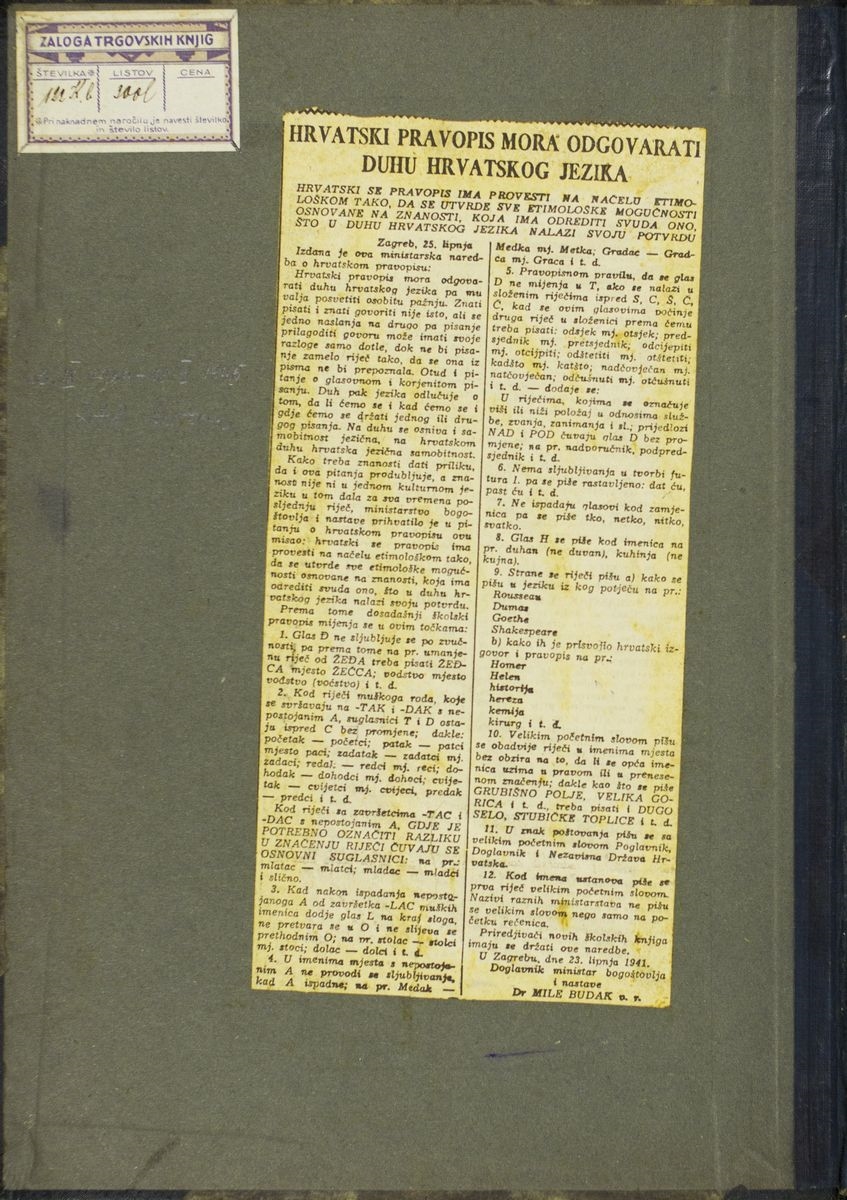 ZALOGA TRGOVSKIH KNJIG
ŠTEVILKA※ LISTOV CENA
※Pri naknadnem naročilu je navesti številko
in število listov.
HRVATSKI PRAVOPIS MORA ODGOVARATI
DUHU HRVATSKOG JEZIKA
HRVATSKI SE PRAVOPIS IMA PROVESTI NA NAČELU ETIMO-
LOŠKOM TAKO, DA SE UTVRDE SVE ETIMOLOŠKE MOGUĆNOSTI
OSNOVANE NA ZNANOSTI, KOJA IMA ODREDITI SVUDA ONO,
ŠTO U DUHU HRVATSKOG JEZIKA NALAZI SVOJU POTVRDU
Zagreb, 25. lipnja
Izdana je ova ministarska nared-
ba o hrvatskom pravopisu:
Hrvatski pravopis mora odgova-
rati duhu hrvatskog jezika pa mu
valja posvetiti osobitu pažnju. Znati
pisati i znati govoriti nije isto, ali se
jedno naslanja na drugo pa pisanje
prilagoditi govoru može imati svoje
razloge samo dotle, dok ne bi pisa-
nje zamelo riječ tako, da se ona iz
pisma ne bi prepoznala. Otud i pi-
tanje o glasovnom i korjenitom pi-
sanju. Duh pak jezika odlučuje o
tom, da li ćemo se i kad ćemo se i
gdje ćemo se držati jednog ili dru-
gog pisanja. Na duhu se osniva i sa-
mobitnost jezična, na hrvatskom
duhu hrvatska jezična samobitnost.
Kako treba znanosti dati priliku,
da i ova pitanja produbljuje, a zna-
nost nije ni u jednom kulturnom je-
ziku u tom dala za sva vremena po-
sljednju riječ, ministarstvo bogo-
štovlja i nastave prihvatilo je u pi-
tanju o hrvatskom pravopisu ovu
misao: hrvatski se pravopis ima
provesti na načelu etimološkom tako,
da se utvrde sve etimološke moguć-
nosti osnovane na znanosti, koja ima
odrediti svuda ono, što u duhu hr-
vatskog jezika nalazi svoju potvrdu.
Prema tome dosadašnji školski
pravopis mijenja se u ovim točkama:
1. Glas Đ ne sljubljuje se po zvuč-
nosti, pa prema tome na pr. umanje-
nu riječ od ŽEĐA treba pisati ŽEĐ-
CA mjesto ŽEĆCA; vođstvo mjesto
voćstvo (voćstvo) i t. d.
2. Kod riječi muškoga roda, koje
se svršavaju na -TAK i -DAK s ne-
postojanim A, suglasnici T i D osta-
ju ispred C bez promjene; dakle:
početak — početci; patak — patci
mjesto paci; zadatak — zadatci mj.
zadaci; redak — redci mj. reci; do-
hodak — dohodci mj. dohoci; cvije-
tak — cvijetci mj. cvijeci, predak
— predci i t. d.
Kod riječi sa završetcima -TAC i
-DAC s nepostojanim A, GDJE JE
POTREBNO OZNAČITI RAZLIKU
U ZNAČENJU RIJEČI ČUVAJU SE
OSNOVNI SUGLASNICI: na pr.:
mlatac — mlatci; mladac — mladci
i slično.
3. Kad nakon ispadanja neposto-
janoga A od završetka -LAC muških
imenica dodje glas L na kraj sloga,
ne pretvara se u O i ne slijeva se
prethodnim O; na pr. stolac — stolci
mj. stoci; dolac — dolci i t. d.
4. U imenima mjesta s nepostoja-
nim A ne provodi se sljubljivanje,
kad A ispadne; na pr. Medak —
Medka mj. Metka; Gradac — Grad-
ca mj. Graca i t. d.
5. Pravopisnom pravilu, da se glas
D ne mijenja u T, ako se nalazi u
složenim riječima ispred S, C, Š, Č,
Ć, kad se ovim glasovima počinje
druga riječ u složenici prema čemu
treba pisati: odsjek mj. otsjek; pred-
sjednik mj. pretsjednik; odcijepiti
mj. otcijpiti; odštetiti mj. otštetiti;
kadšto mj. katšto; nadčovječan mj.
natčovječan; odćušnuti mj. otćušnuti
i t. d. — dodaje se:
U riječima, kojima se označuje
viši ili niži položaj u odnosima služ-
be, zvanja, zanimanja i sl.; prijedlozi
NAD i POD čuvaju glas D bez pro-
mjene; na pr. nadporučnik, podpred-
sjednik i t. d.
6. Nema sljubljivanja u tvorbi fu-
tura I. pa se piše rastavljeno: dat ću,
past ću i t. d.
7. Ne ispadaju glasovi kod zamje-
nica pa se piše tko, netko, nitko,
svatko.
8. Glas H se piše kod imenica na
pr. duhan (ne duvan), kuhinja (ne
kujna).
9. Strane se riječi pišu a) kako se
pišu u jeziku iz kog potječu na pr.:
Rousseau
Dumas
Goethe
Shakespeare
b) kako ih je prisvojio hrvatski iz-
govor i pravopis na pr.:
Homer
Helen
historija
hereza
kemija
kirurg i t. d.
10. Velikim početnim slovom pišu
se obadvije riječi u imenima mjesta
bez obzira na to, da li se opća ime-
nica uzima u pravom ili u prenese-
nom značenju; dakle kao što se piše
GRUBIŠNO POLJE, VELIKA GO-
RICA i t. d., treba pisati i DUGO
SELO, STUBIČKE TOPLICE i t. d.
11. U znak poštovanja pišu se sa
velikim početnim slovom Poglavnik,
Doglavnik i Nezavisna Država Hr-
vatska.
12. Kod imena ustanova piše se
prva riječ velikim početnim slovom.
Nazivi raznih ministarstava ne pišu
se velikim slovom nego samo na po-
četku rečenica.
Priredjivači novih školskih knjiga
imaju se držati ove naredbe.
U Zagrebu, dne 23. lipnja 1941.
Doglavnik ministar bogoštovlja
i nastave
Dr MILE BUDAK v. r.